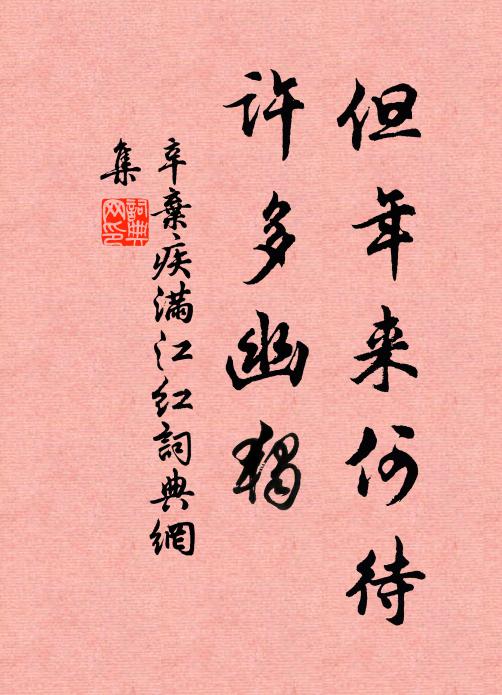 但年来何待
许多幽独
辛棄疾满江红詞典網
集
詞典
网印